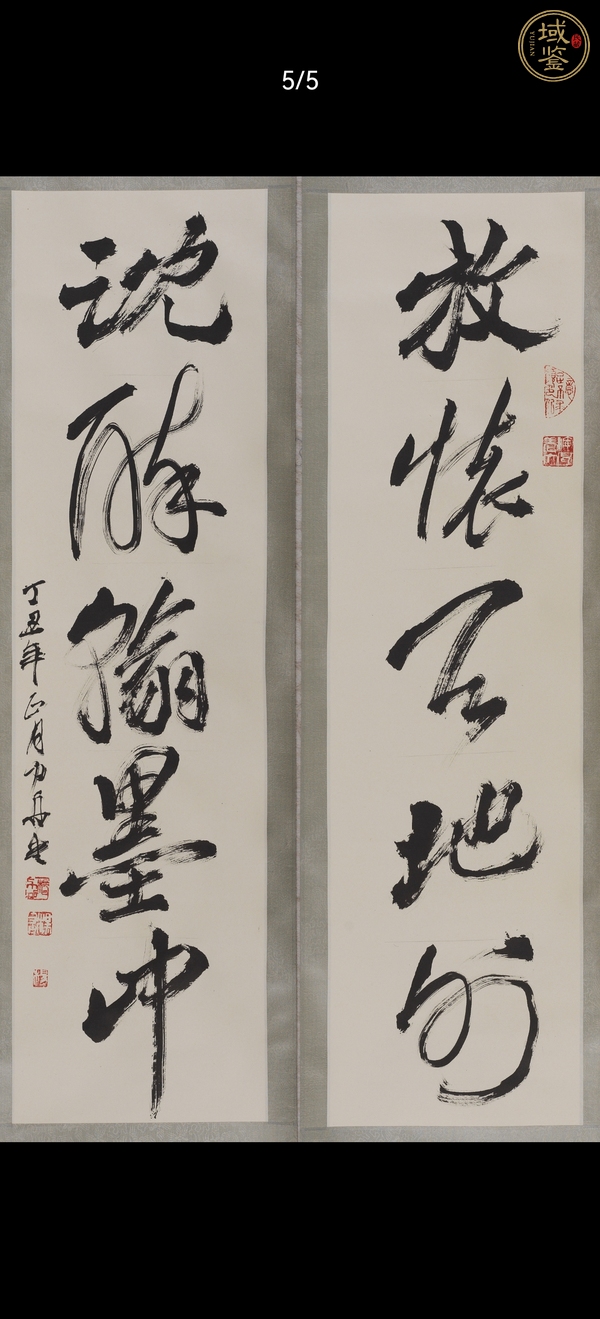 5/5
域鉴
YUJIAN
放怀天地外
沈醉翰墨中
丁丑年正月力舟书